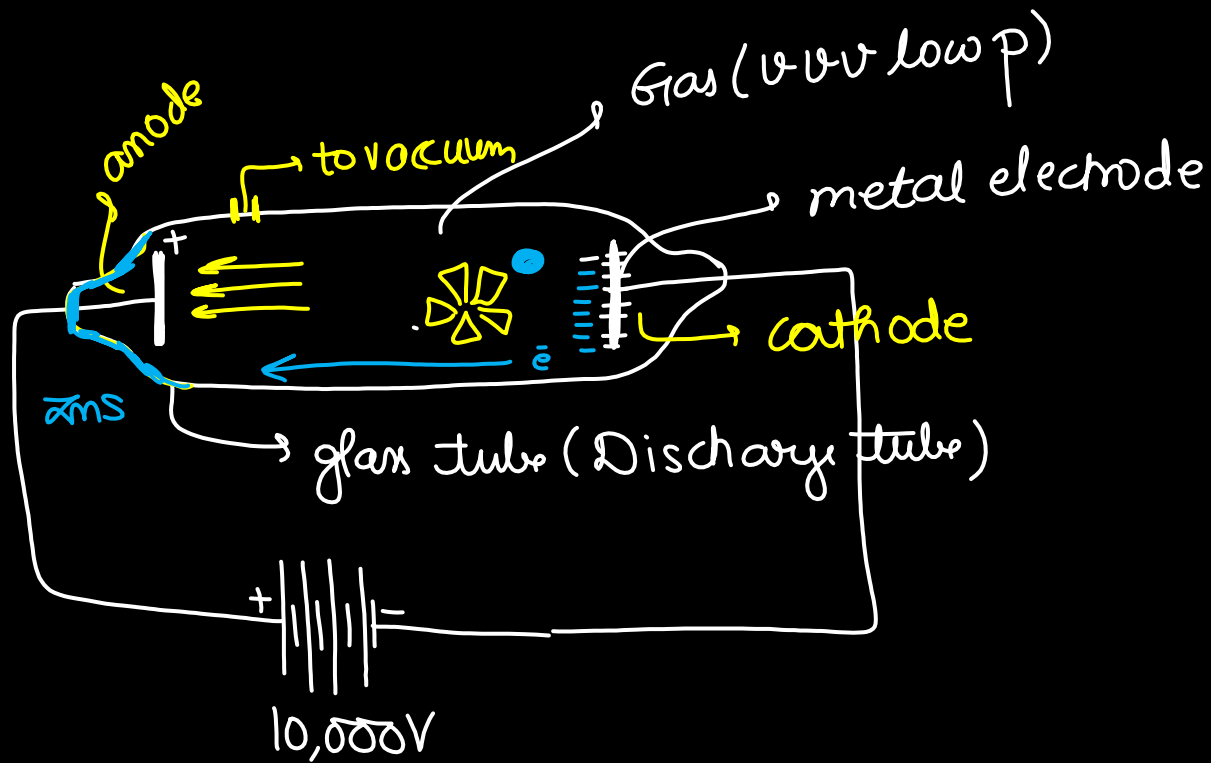 Gas (v v v low p)
anode
to vaccuum
metal electrode
+
cathode
ē
zns
glass tube (Discharge tube)
+ −
10,000V